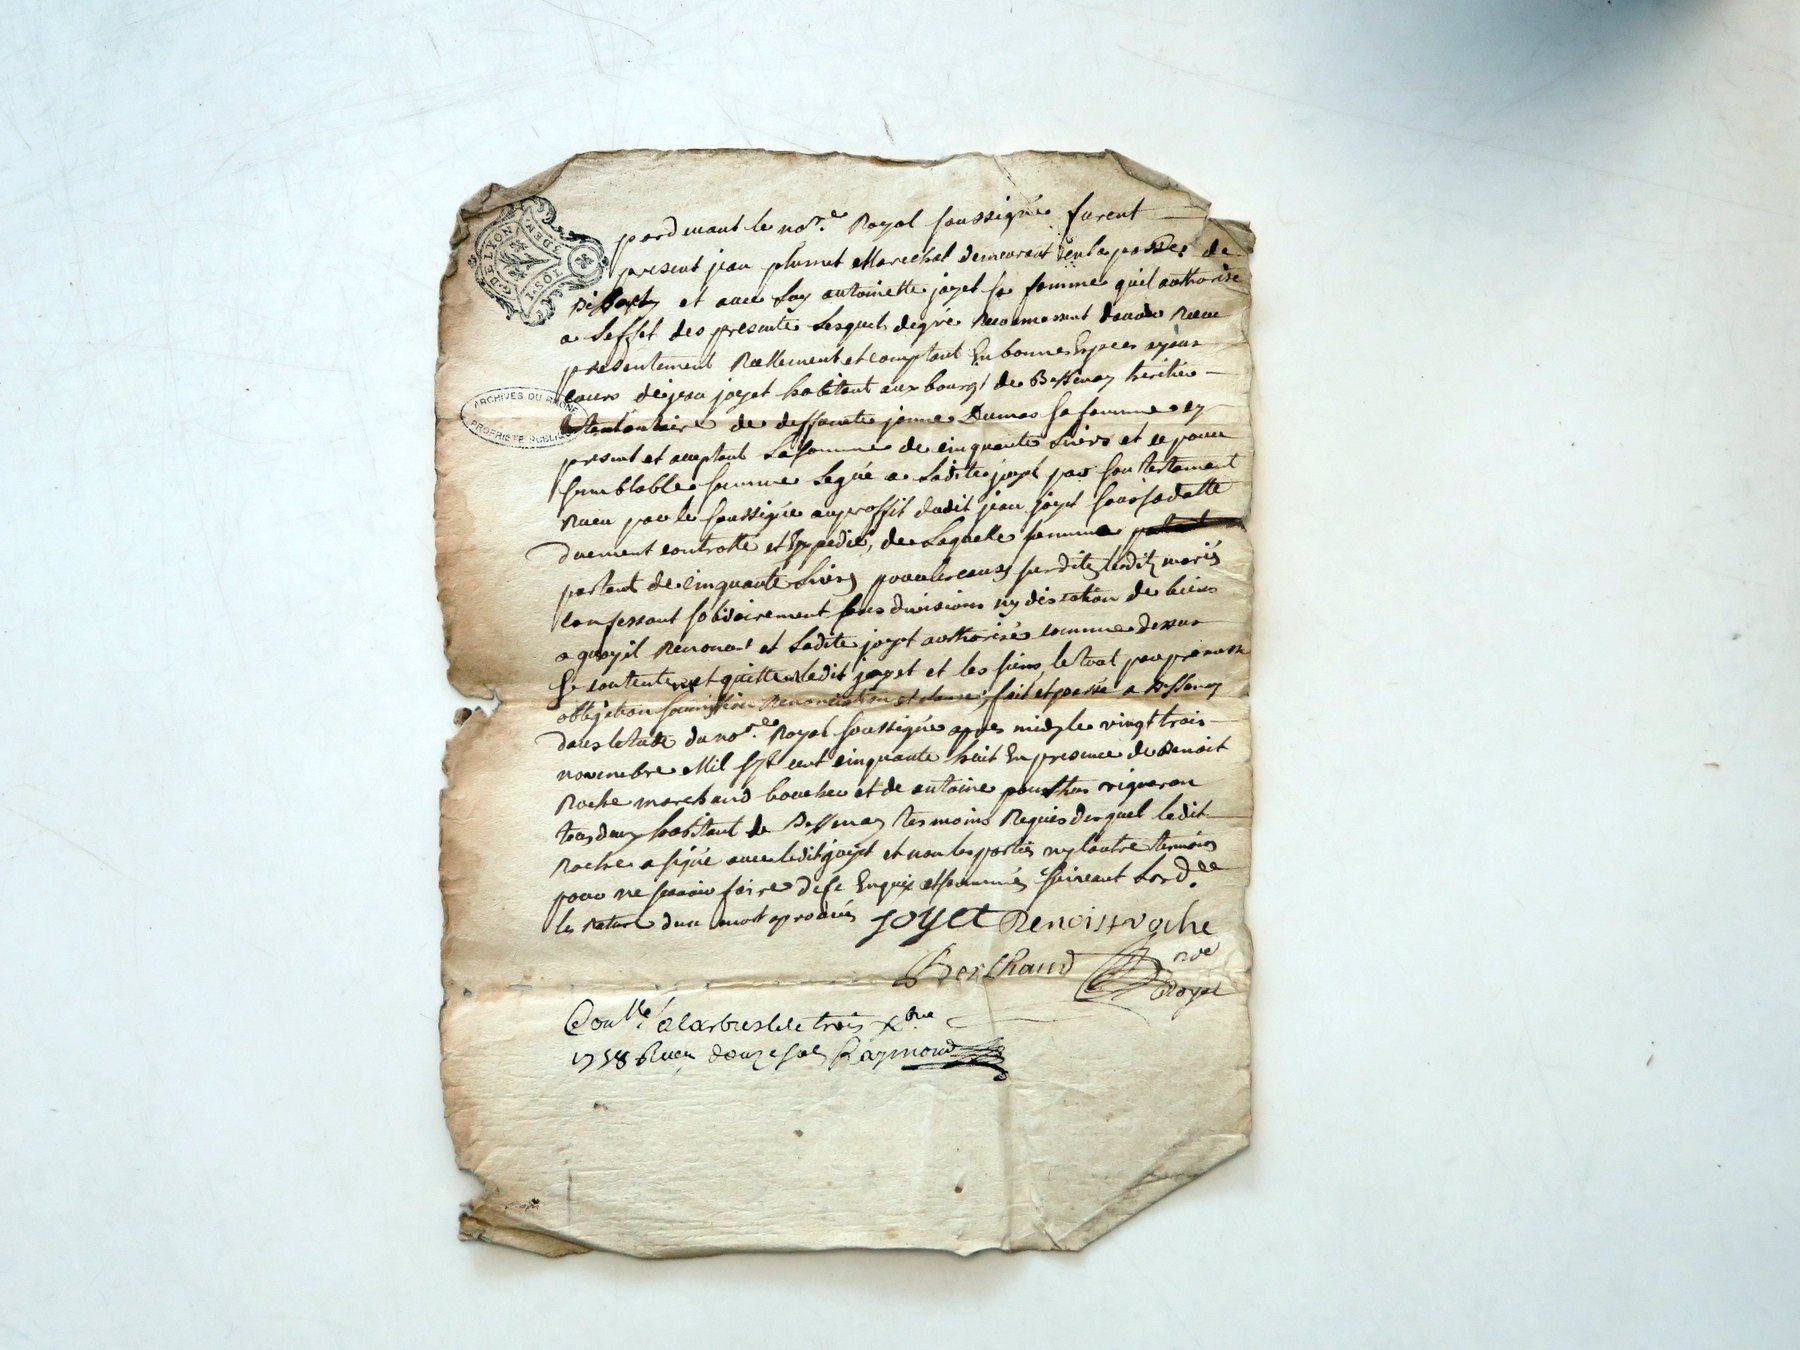 G. DE LYON
3 DEN
TOS. 1
ARCHIVES DU RHÔNE
PROPRIÉTÉ PUBLIQUE
pardevant le no.re Royal soussigné furent
present jean plumet Marechal demeurant en la parr de
et avec luy antoinette joyet sa femme quil authorise
a Leffet des presente Lesquels de gré Reconnessent davoir Receu
presentement Reellement et comptant En bonnes Especes ayant
cours de jean joyet habitant aux bourg de Bessenay heritier
testamentaire de deffuncte janne Dumas sa femme icy
present et acceptant La somme de cinquante Livres et ce pour
semblable somme Leguée a Ladite joyet par son testament
Receu par le soussigné au proffit dudit jean joyet sous sa datte
duement controllé et Expedié, de Laquelle somme
partant de cinquante Livres pour les causes susdites lesdits mariés
confessant solidairement sans division ny discution de biens
a quoy il Renoncent et Ladite joyet authorisée comme dessus
se contentent et quittent ledit joyet et les siens le tout par promesse
obligation soumission Renonciation et clauses fait et passé a Bessenay
dans letude du no.re Royal soussigné apres midy le vingt trois
novembre Mil sept cent cinquante huit En presence de Benoit
Roche marchand boucher et de antoine vigneron
tous deux habitant de Bessenay tesmoins Requis desquel ledit
Roche a signé avec ledit joyet et non les parties ny lautre termoins
pour ne scavoir faire de ce Enquis et sommés suivant Lord.ce
les Rature dun mot aprouvés joyet Benoist roche
Berthaud nre
Royal
Con.llé a larbresle le trois xbre
1758 Receu douze sols Raymond